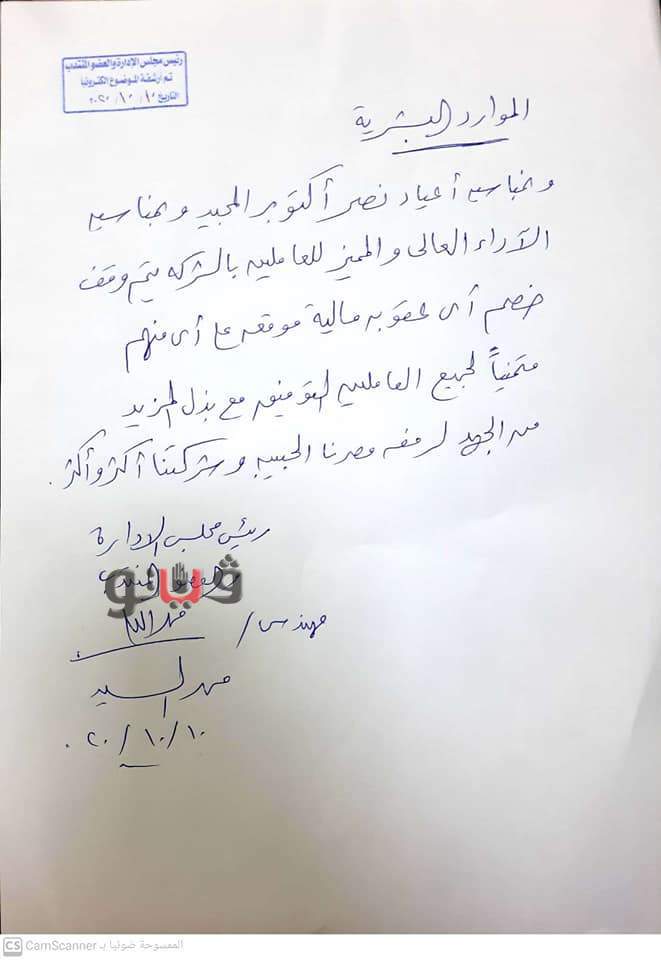 رئيس مجلس الإدارة والعضو المنتدب
تم أرشفة الموضوع الكترونيا
التاريخ ١٠ / ١٠ / ٢٠٢٠
الموارد البشرية
وبمناسبه أعياد نصر أكتوبر المجيد وبمناسبه
الآداء العالى والمميز للعاملين بالشركه يتم وقف
خصم أى عقوبه مالية موقعه على أى منهم
متمنياً لجميع العاملين التوفيق مع بذل المزيد
من الجهد لرفعه مصرنا الحبيبه وشركتنا أكثر وأكثر.
رئيس مجلس الادارة
والعضو المنتدب
ڤيتو
مهندس /
السيد
١٠/١٠/٢٠.
CS CamScanner الممسوحة ضوئيا بـ